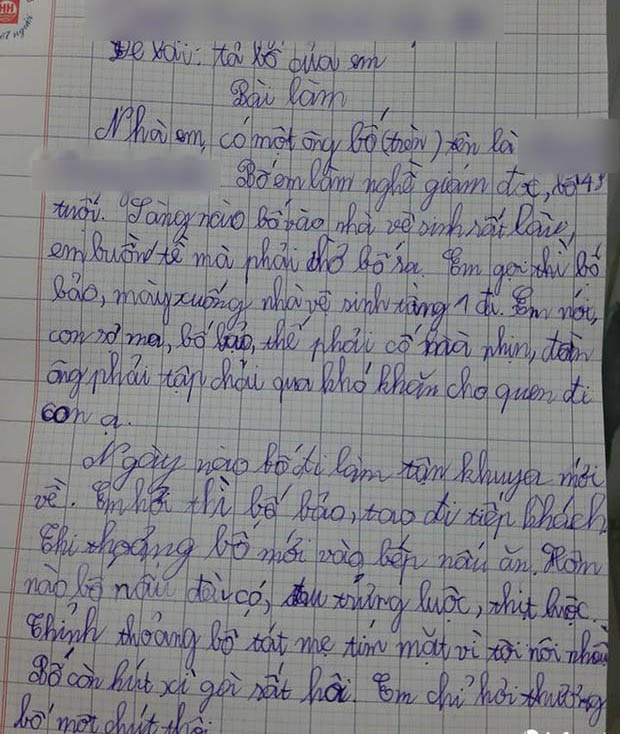 HH
Đề bài: tả bố của em
Bài làm
Nhà em, có một ông bố (trẻ) tên là
Bố em làm nghề giám đốc, bố 43
tuổi. Sáng nào bố vào nhà vệ sinh rất lâu,
em buồn tè mà phải chờ bố ra. Em gọi thì bố
bảo, mày xuống nhà vệ sinh tầng 1 đi. Em nói,
con sợ ma, bố bảo, thế phải cố mà nhịn, đàn
ông phải tập chải qua khó khăn cho quen đi
con ạ.
Ngày nào bố đi làm tận khuya mới
về. Em hỏi thì bố bảo, tao đi tiếp khách
Thi thoảng bố mới vào bếp nấu ăn. Hôm
nào bố nấu đều có, trứng luộc, thịt luộc.
Thỉnh thoảng bố tát mẹ tím mặt vì tội nói nhiều
Bố còn hút xì gà rất hôi. Em chỉ hơi thương
bố một chút thôi